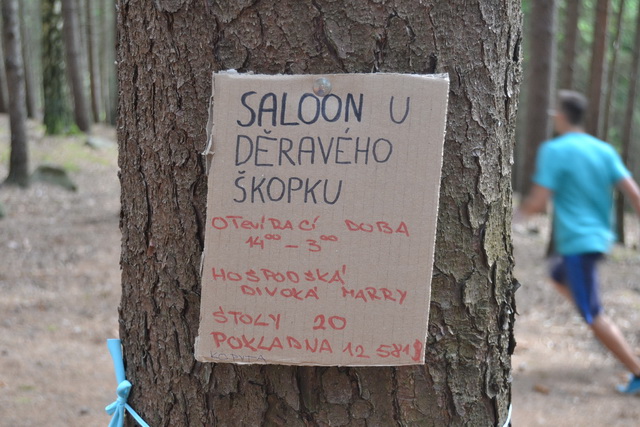 SALOON U
DĚRAVÉHO
ŠKOPKU
OTEVÍRACÍ DOBA
14⁰⁰ – 3⁰⁰
HOSPODSKÁ
DIVOKÁ MARRY
STOLY 20
POKLADNA 12 581